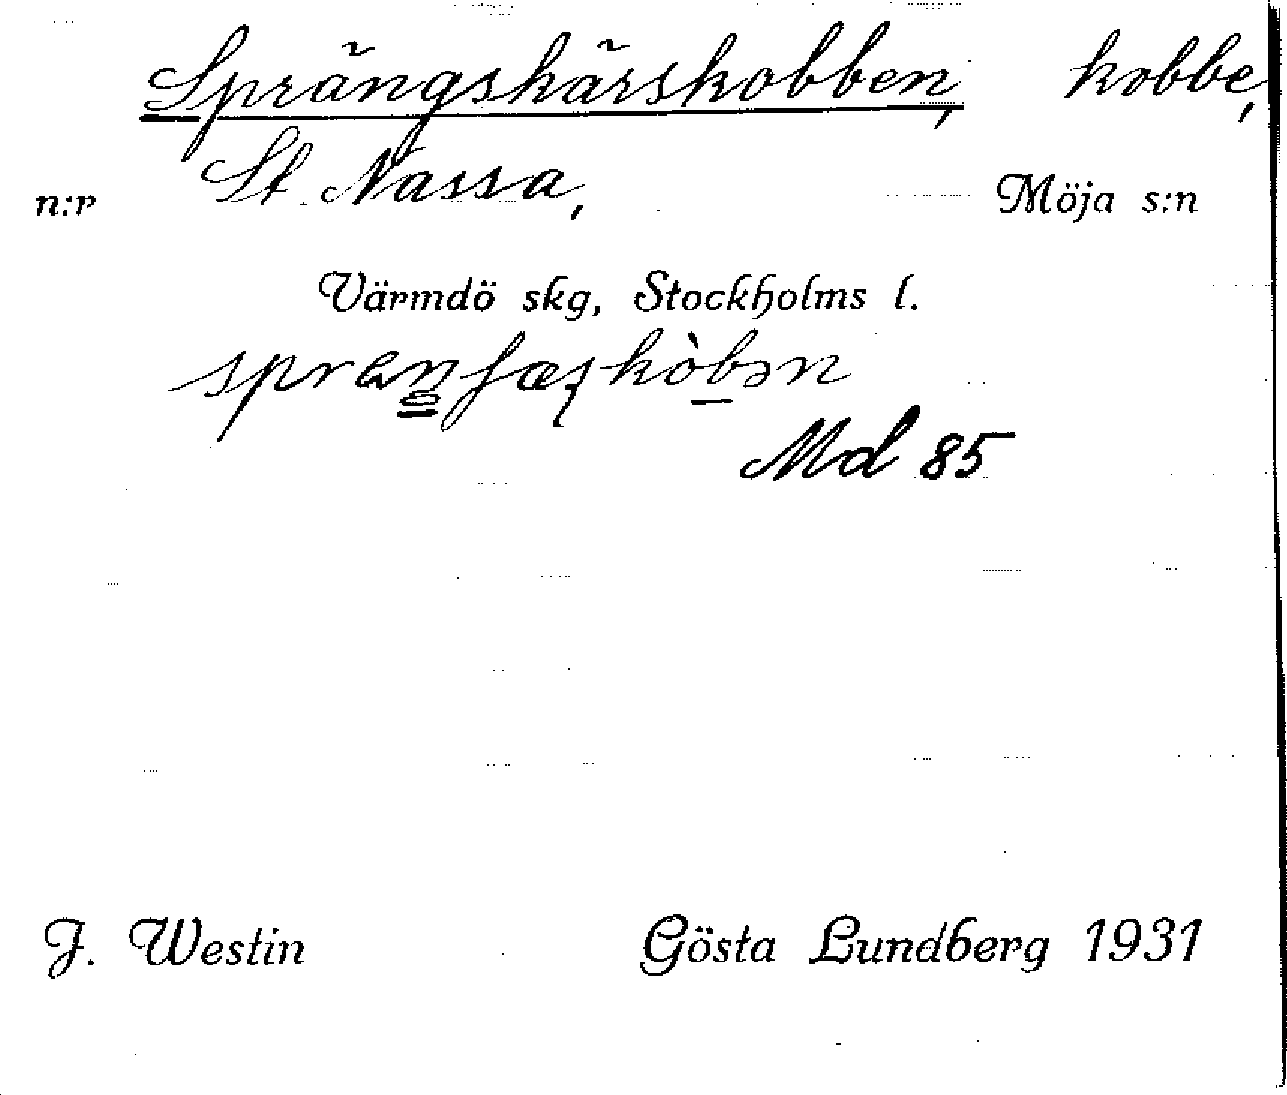 Sprängskärskobben, kobbe,
St Nassa,
n:r Möja s:n
Värmdö skg, Stockholms l.
Md 85
J. Westin Gösta Lundberg 1931